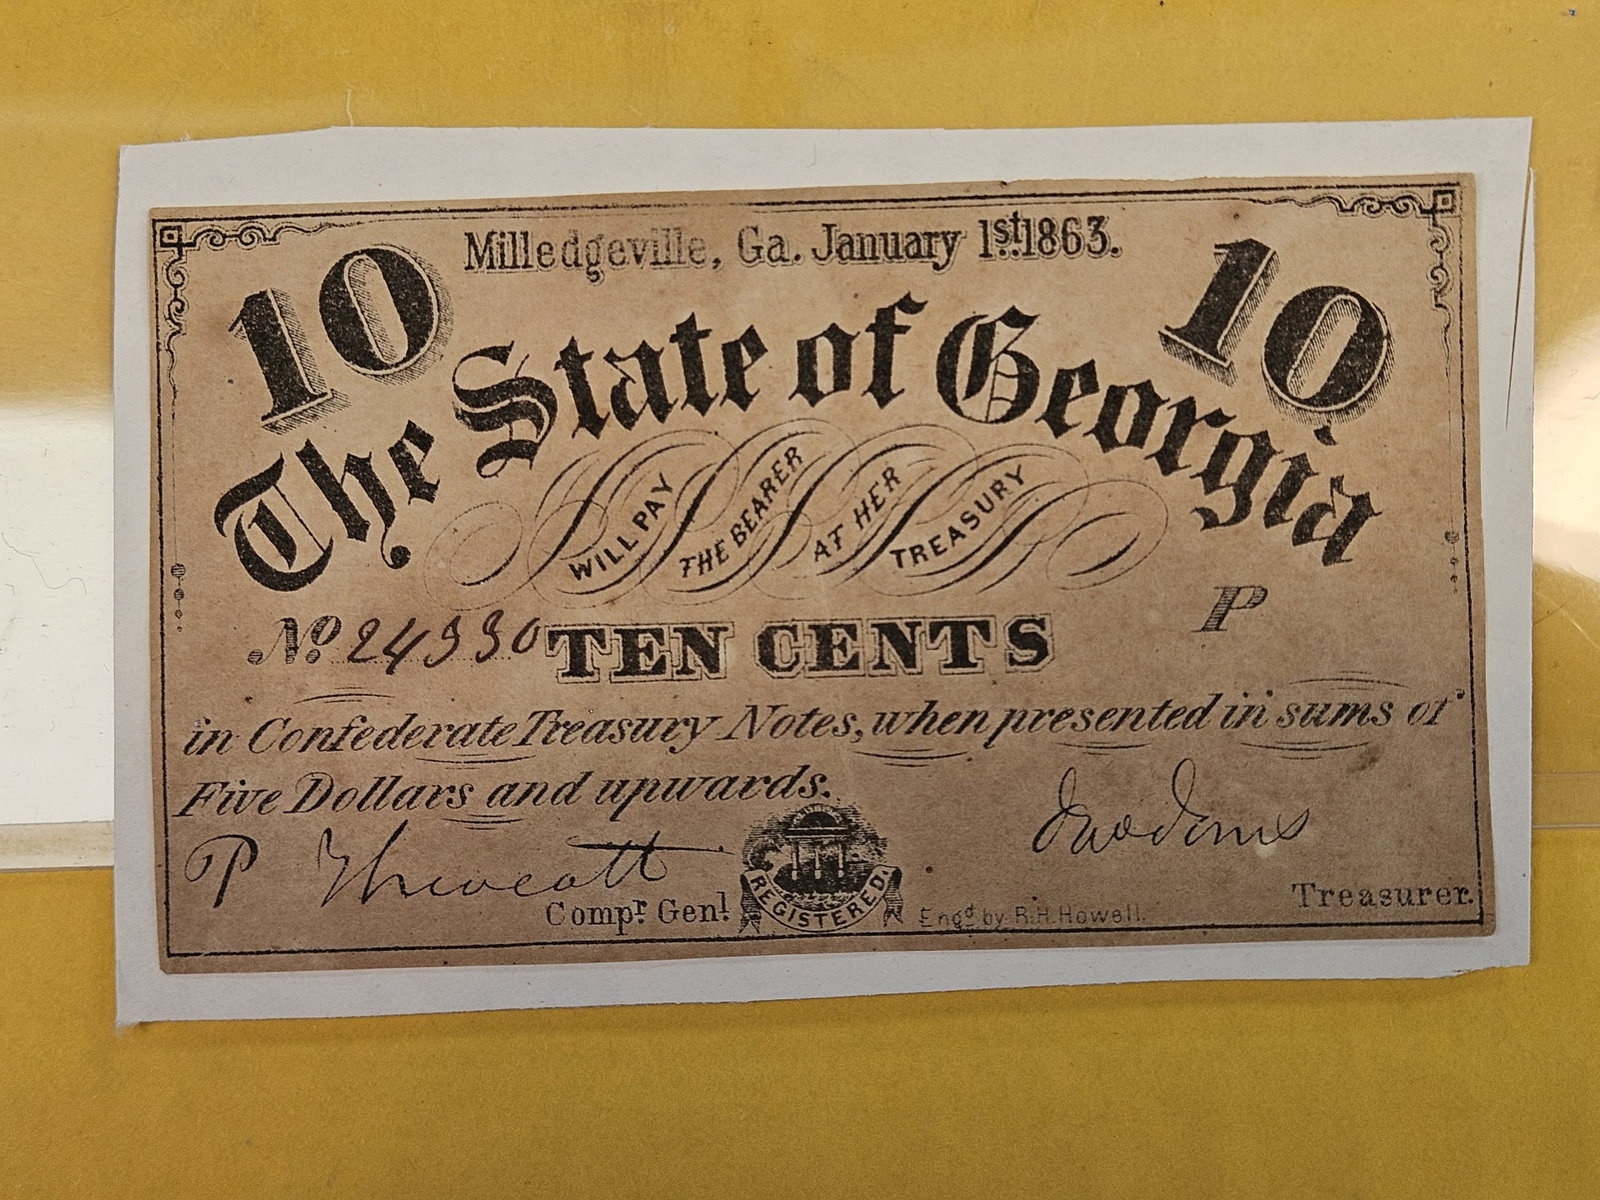 Milledgeville, Ga. January 1st. 1863.
10 10
The State of Georgia
WILL PAY THE BEARER AT HER TREASURY
No. 24930 TEN CENTS P
in Confederate Treasury Notes, when presented in sums of
Five Dollars and upwards.
P
Compr. Genl. REGISTERED. Engd. by R.H. Howell. Treasurer.